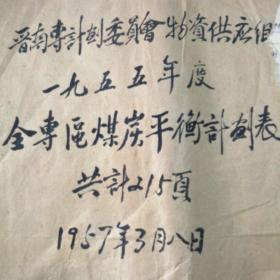 晋南專計划委員會物資供应組
一九五五年度
全專區煤炭平衡計划表
共計215頁
1957年3月八日